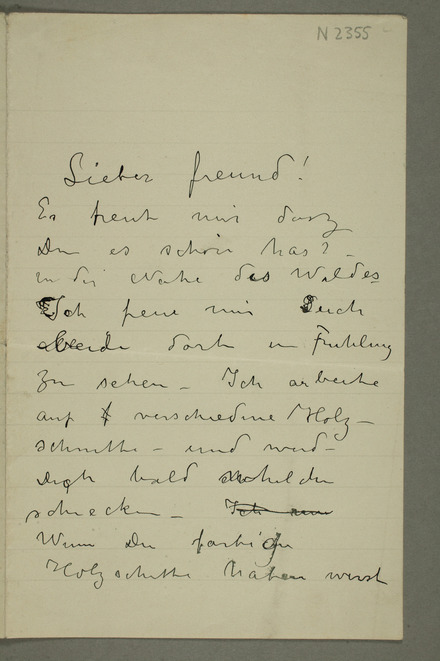 N 2355
Lieber Freund!
Es freut mir dasz
Du es schön has? –
in die Nahe des Waldes
Ich freue mir Deuch
Beide dort in Fruhling
zu sehen – Ich arbeite
auf verschiedene Holz–
schnitte – und werd–
Digh bald
schecken – Ich
Wenn Du farbige
Holzschitte haben wirst